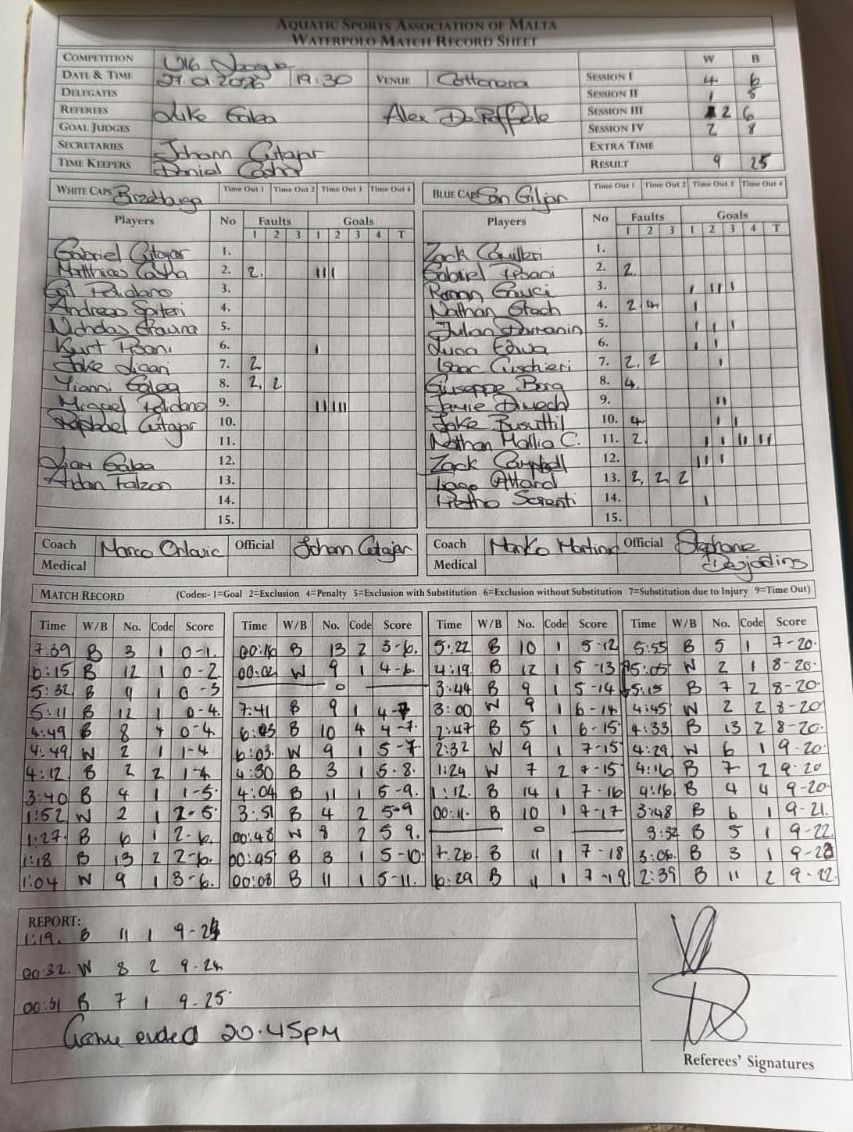 AQUATIC SPORTS ASSOCIATION OF MALTA
WATERPOLO MATCH RECORD SHEET
COMPETITION U16
DATE & TIME 19:30 VENUE Cottonera
DELEGATES
REFEREES Alex De Raffaele
GOAL JUDGES
SECRETARIES Johann Cutajar
TIME KEEPERS
W B
SESSION I 4 6
SESSION II 1 5
SESSION III 2 6
SESSION IV 2 8
EXTRA TIME
RESULT 9 25
WHITE CAPS Birzebbuga Time Out 1 Time Out 2 Time Out 3 Time Out 4
PLAYERS NO FAULTS GOALS
1 2 3 1 2 3 4 T
Gabriel Cutajar 1.
Matthias Costa 2. 2. III
Polidano 3.
Andreas Spiteri 4.
Nicholas 5.
Kurt Pisani 6. I
Jake 7. 2
Yianni Galea 8. 2, 2
Miguel Polidano 9. IIIII
Raphael Cutajar 10.
11.
12.
Aidan Falzon 13.
14.
15.
BLUE CAPS San Giljan Time Out 1 Time Out 2 Time Out 3 Time Out 4
PLAYERS NO FAULTS GOALS
1 2 3 1 2 3 4 T
Zack Camilleri 1.
Gabriel Pisani 2. 2.
Gauci 3. I III I
Nathan 4. 2.4. I
Julan 5. I I I
Luca 6. I I
Isaac Cuschieri 7. 2, 2 I
Giuseppe Borg 8. 4.
Jamie 9. II
Jake Busuttil 10. 4. I I
Nathan Mallia C. 11. 2. I I II II
Zack Campbell 12. II I
Attard 13. 2, 2 2
14. I
15.
COACH Marco Orlavic OFFICIAL Johann Cutajar
MEDICAL
COACH Marko OFFICIAL Stephanie Desjardins
MEDICAL
MATCH RECORD (Codes:- 1=Goal 2=Exclusion 4=Penalty 5=Exclusion with Substitution 6=Exclusion without Substitution 7=Substitution due to Injury 9=Time Out)
TIME W/B NO. CODE SCORE
7:39 B 3 1 0-1.
6:15 B 12 1 0-2
5:32 B 9 1 0-3
5:11 B 12 1 0-4.
4:49 B 8 4 0-4.
4:49 W 2 1 1-4
4:12 B 2 2 1-4
3:40 B 4 1 1-5.
1:52 W 2 1 2-5.
1:27. B 6 1 2-6.
1:18 B 13 2 2-6.
1:04 W 9 1 3-6.
TIME W/B NO. CODE SCORE
00:16 B 13 2 3-6.
00:02 W 9 1 4-6.
0
7:41 B 9 1 4-7
6:03 B 10 4 4-7.
6:03. W 9 1 5-7
4:30 B 3 1 5-8.
4:04 B 11 1 5-9.
3:51 B 4 2 5-9
00:48 W 8 2 5 9.
00:45 B 3 1 5-10
00:08 B 11 1 5-11.
TIME W/B NO. CODE SCORE
5:22 B 10 1 5-12
4:19 B 12 1 5-13
3:44 B 9 1 5-14
3:00 W 9 1 6-14
2:47 B 5 1 6-15
2:32 W 9 1 7-15
1:24 W 7 2 7-15
1:12. B 14 1 7-16
00:11. B 10 1 7-17
0
7:26. B 11 1 7-18
6:29 B 11 1 7-19
TIME W/B NO. CODE SCORE
5:55 B 5 1 7-20.
5:05 W 2 1 8-20.
5:15 B 7 2 8-20.
4:45 W 2 2 8-20
4:33 B 13 2 8-20.
4:29 W 6 1 9-20
4:16 B 7 2 9-20
4:16. B 4 4 9-20
3:48 B 6 1 9-21.
3:32 B 5 1 9-22.
3:06. B 3 1 9-23
2:39 B 11 2 9-22.
REPORT:
1:19. B 11 1 9-24
00:32. W 8 2 9-24
00:31 B 7 1 9-25.
Game ended 20.45pm
Referees' Signatures